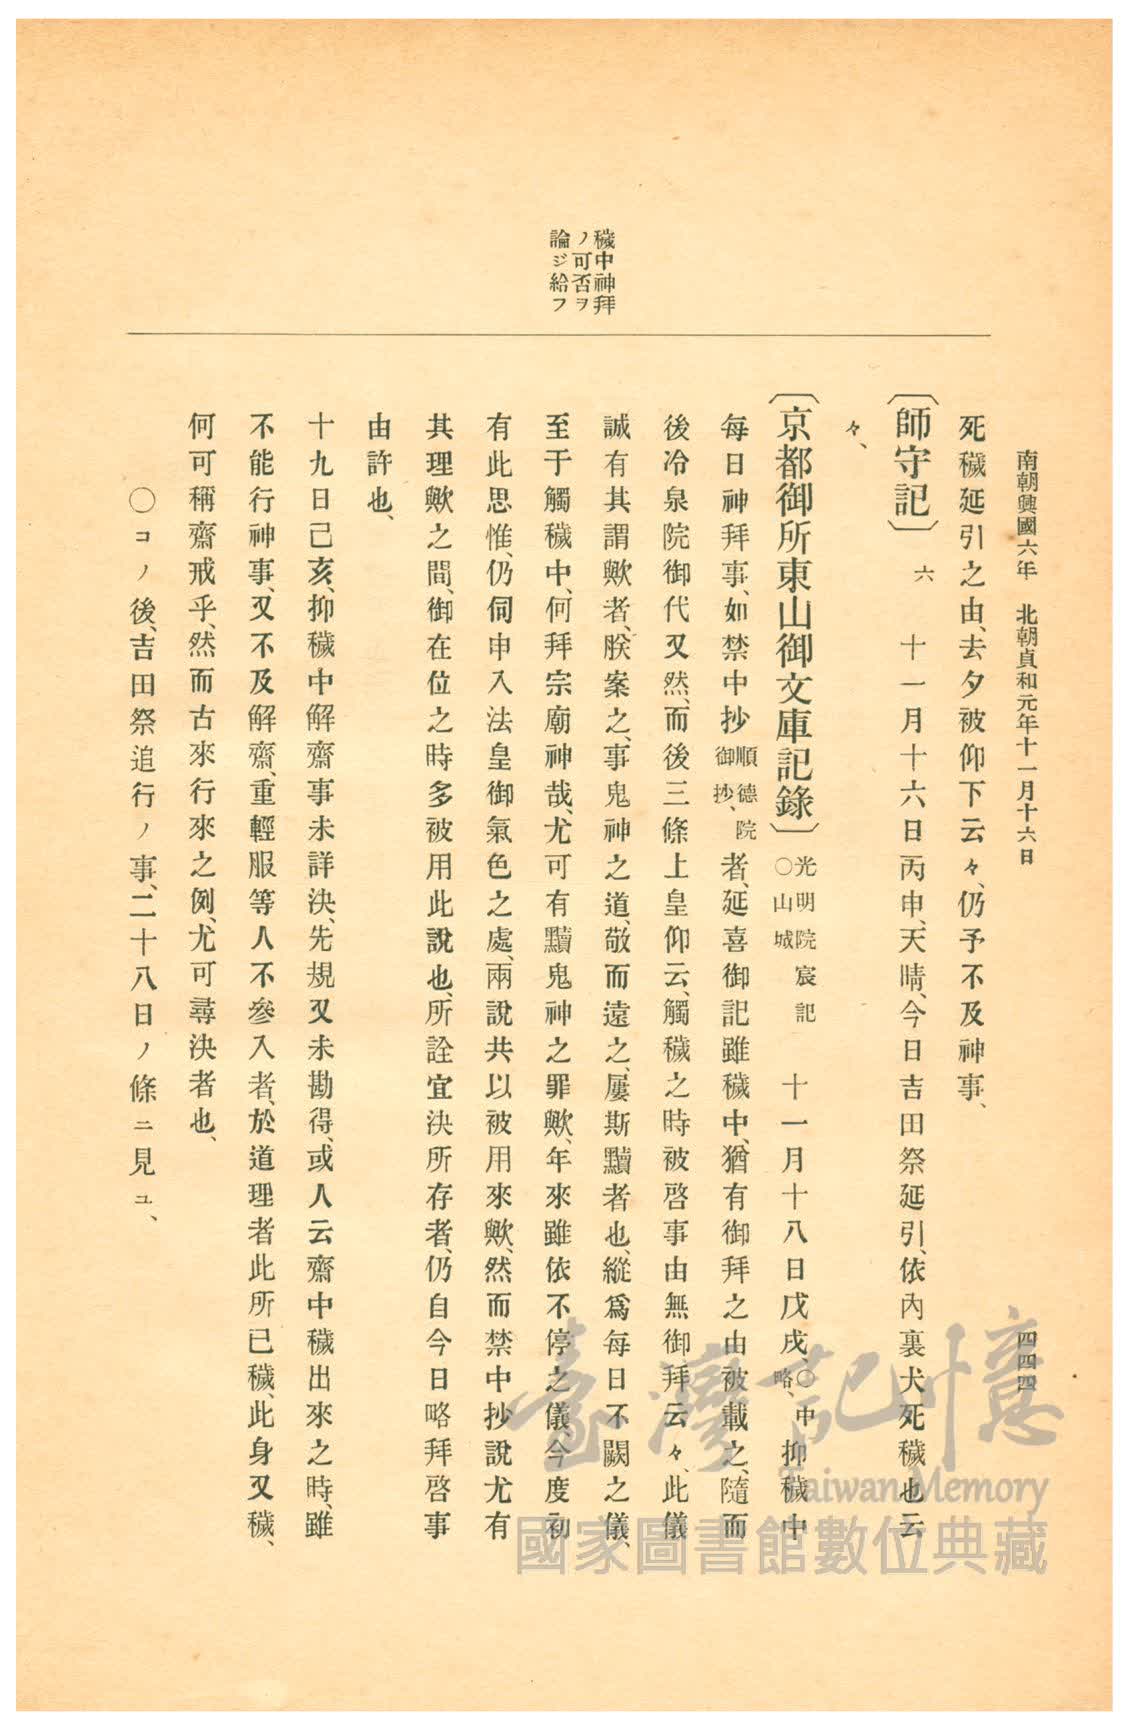 南朝興國六年 北朝貞和元年十一月十六日 四四四
穢中神拜
ノ可否ヲ
論ジ給フ
死穢延引之由、去夕被仰下云々、仍予不及神事、
〔師守記〕 六 十一月十六日丙申、天晴、今日吉田祭延引、依內裏犬死穢也云
々、
〔京都御所東山御文庫記錄〕 光明院宸記 ○山城 十一月十八日戊戌、○中略、抑穢中
每日神拜事、如禁中抄 順德院御抄、 者、延喜御記雖穢中、猶有御拜之由被載之、隨而
後冷泉院御代又然、而後三條上皇仰云、觸穢之時被啓事由無御拜云々、此儀
誠有其謂歟者、朕案之、事鬼神之道、敬而遠之、屢斯黷者也、縱爲每日不闕之儀、
至于觸穢中、何拜宗廟神哉、尤可有黷鬼神之罪歟、年來雖依不停之儀今度初
有此思惟、仍伺申入法皇御氣色之處、兩說共以被用來歟、然而禁中抄說尤有
其理歟之間、御在位之時多被用此說也、所詮宜決所存者、仍自今日略拜啓事
由許也、
十九日己亥、抑穢中解齋事未詳決、先規又未勘得、或人云齋中穢出來之時、雖
不能行神事、又不及解齋、重輕服等人不參入者、於道理者此所已穢、此身又穢、
何可稱齋戒乎、然而古來行來之例、尤可尋決者也、
○コノ後、吉田祭追行ノ事、二十八日ノ條ニ見ユ、
臺灣記憶
Taiwan Memory
國家圖書館數位典藏